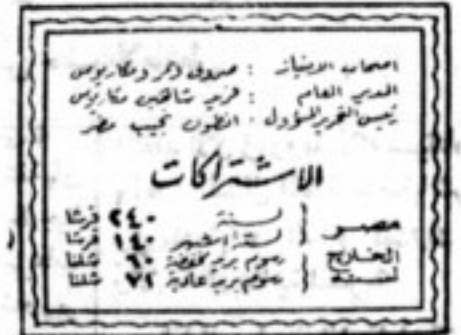 اصحاب الامتياز : صروف ونمر ومكاريوس
المدير العام : فريد شاهين مكاريوس
رئيس التحرير المسؤول : انطون نجيب مطر
الاشتراكات
مصر لسنة ٢٤٠ قرشا
لستة اشهر ١٤٠ قرشا
الخارج رسوم بريد مخفضة ٦٠ شلنا
لسنة رسوم بريد عادية ٧٢ شلنا